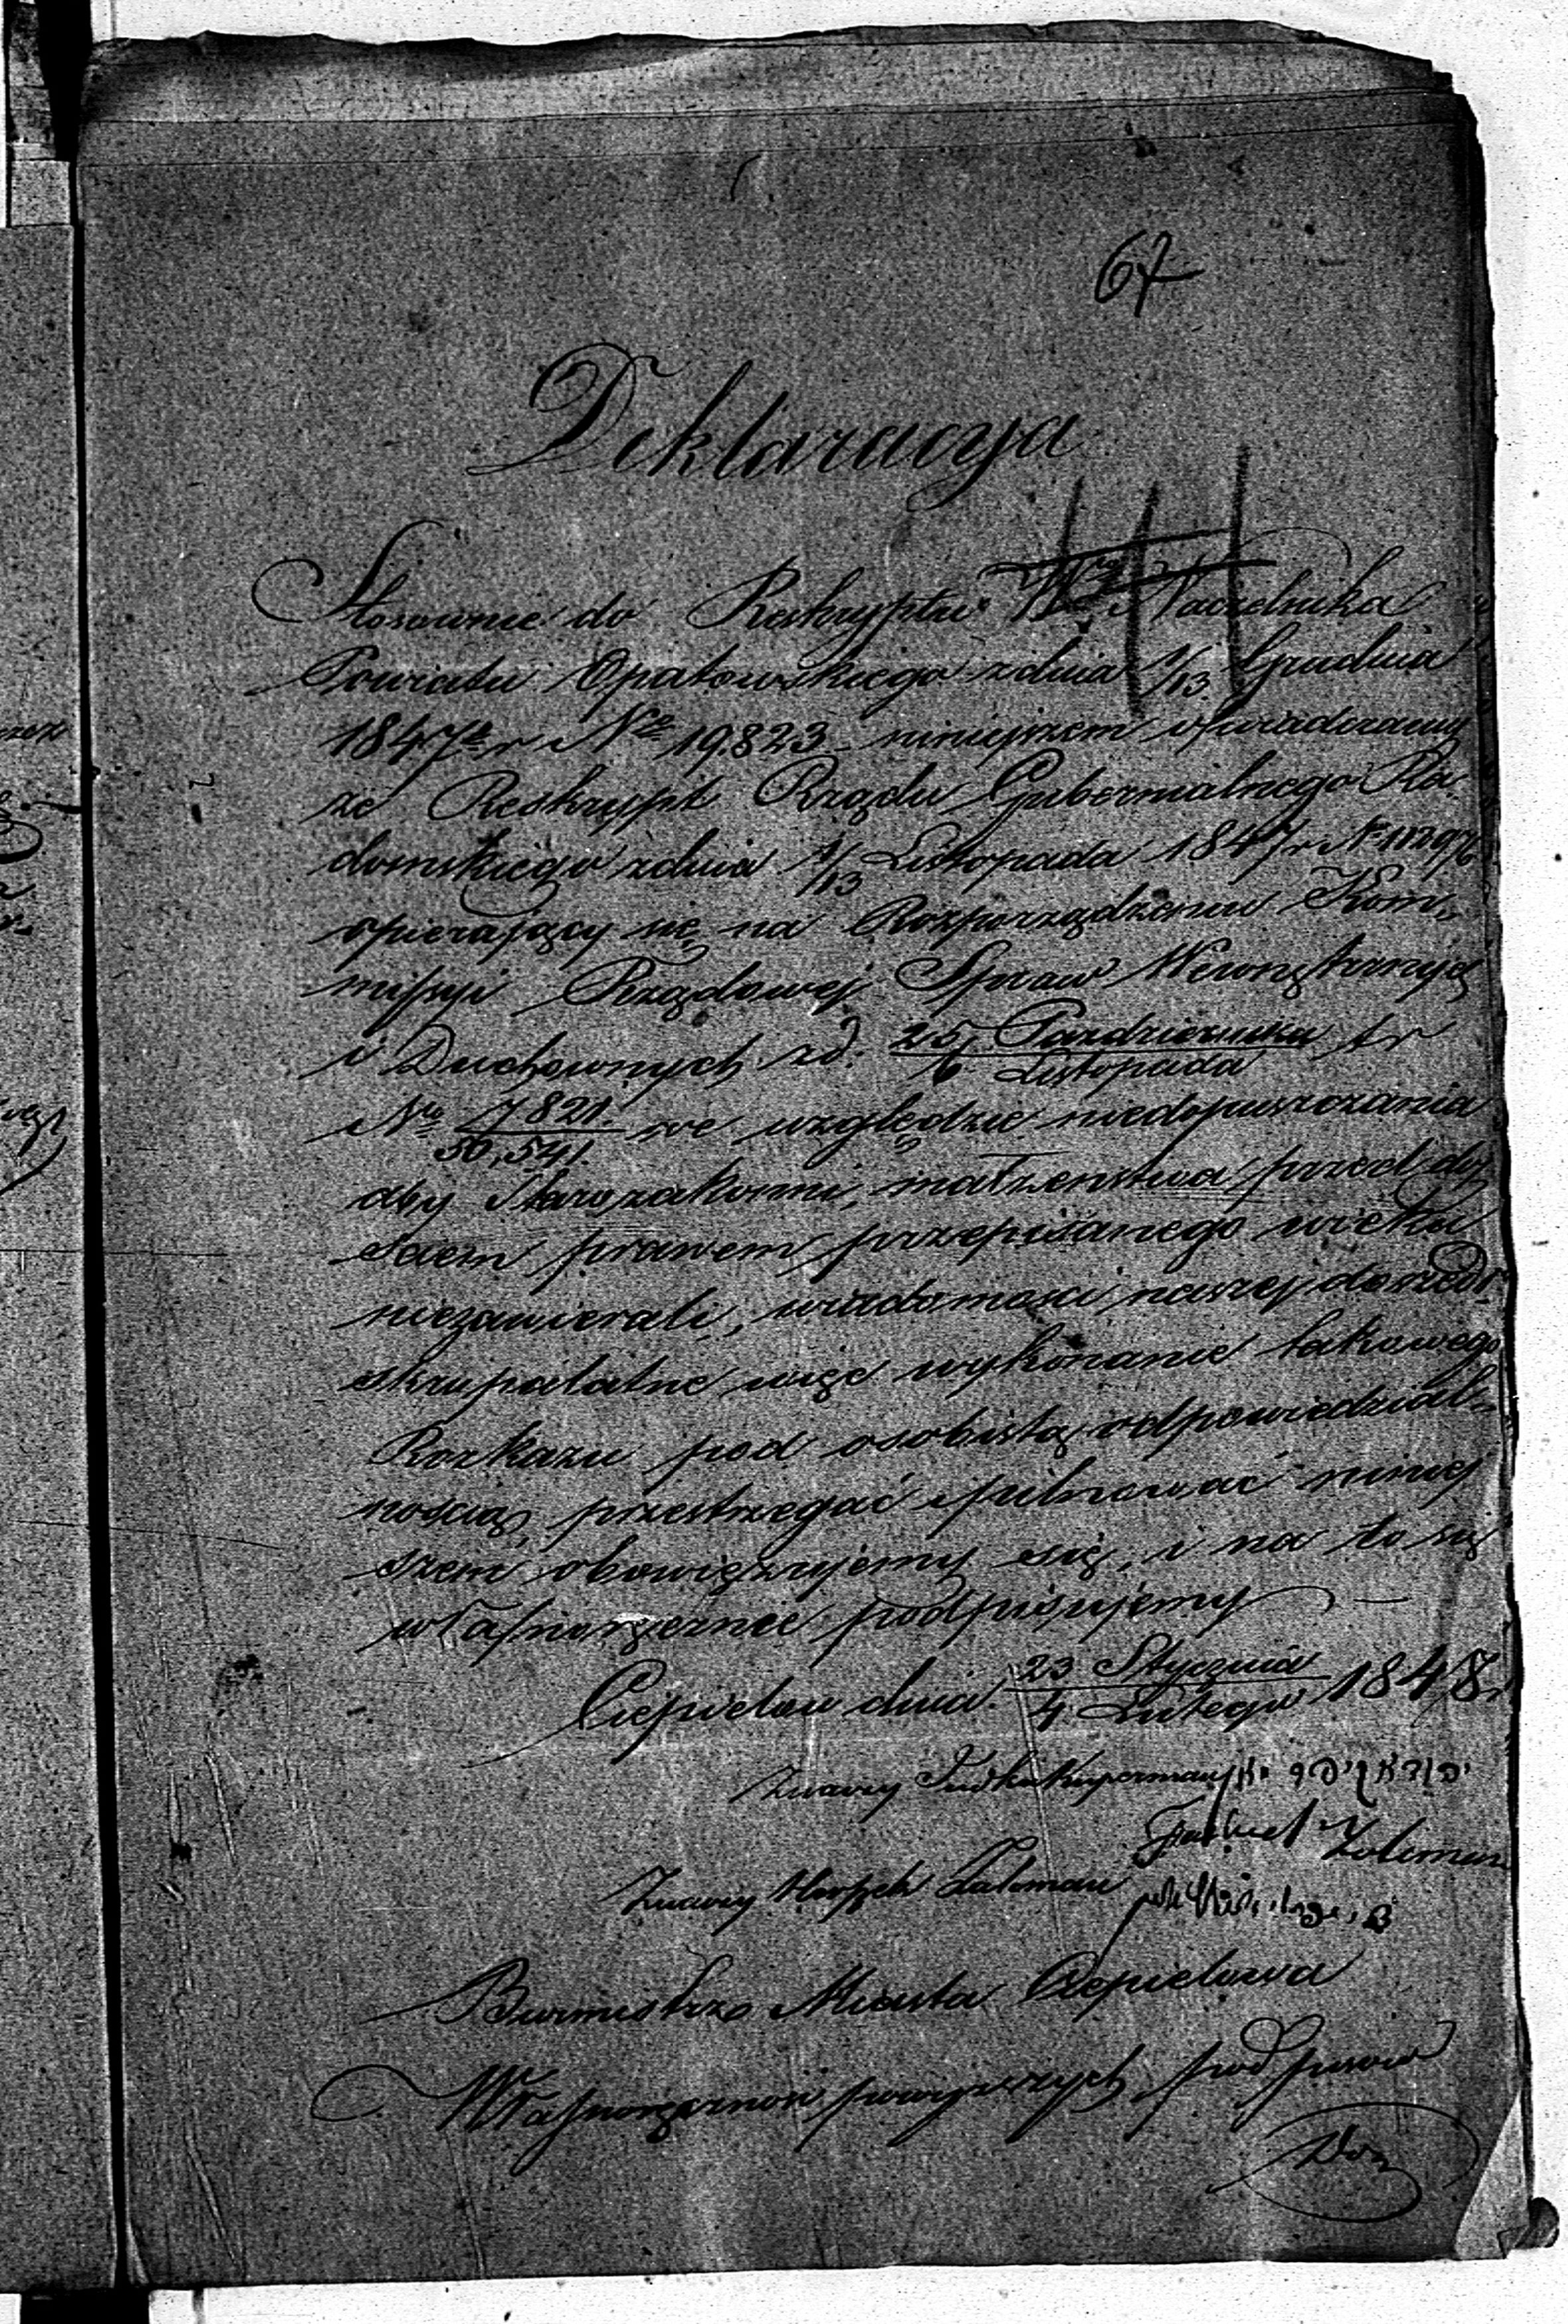 67
Deklaracya
Stosownie do Reskryptu Naczelnika
Powiatu Opatowskiego z dnia 1/13 Grudnia
1847 r No 19.823 niniejszem oświadczamy
że Reskrypt Rządu Gubernialnego Ra-
domskiego z dnia 1/13 Listopada 1847 r
opierający się na Rozporządzeniu Kom-
missyi Rządowej Spraw Wewnętrznych
i Duchownych z d. 25 Października / 6 Listopada t r
No 7821 / 30,541 we względzie niedopuszczania
aby Starozakonni, małżenstwa przed doj
sciem prawem przepisanego wieku
niezawierali, wiadomosci naszej doszedł
skrupulatne więc wykonanie takowego
Rozkazu pod osobistą odpowiedzial-
nością, przestrzegać i pilnować niniej
szem obowięzujemy się, i na to się
własnoręcznie podpisujemy
Ciepielow dnia 23 Stycznia / 4 Lutego 1848 r
Znaczy Judka Kuperman
Znaczy Herszek Zalcman
Burmistrz Miasta Ciepielowa
Własnoręcznosć powyższych podpisow